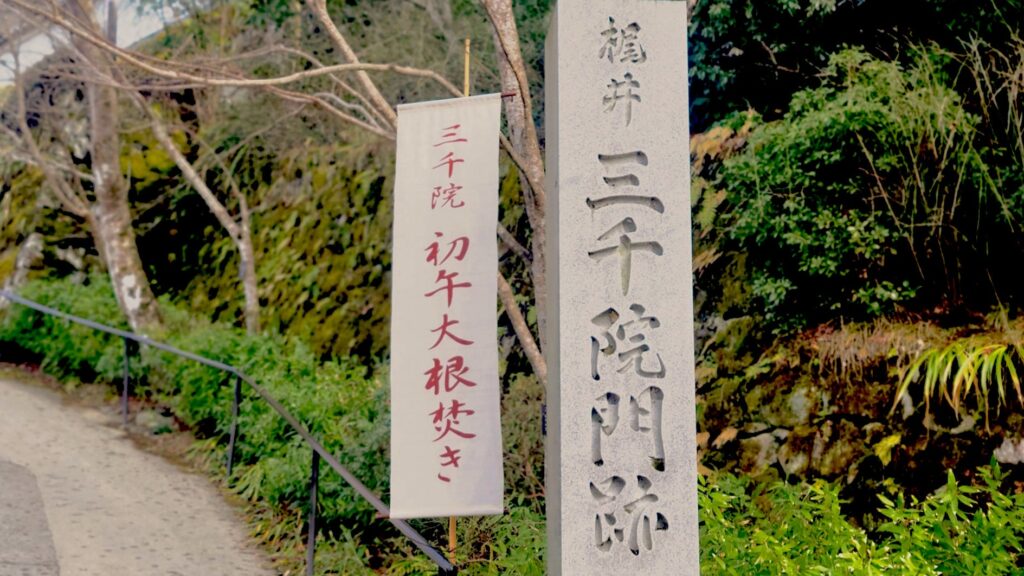 梶井
三千院門跡
三千院
初午大根焚き